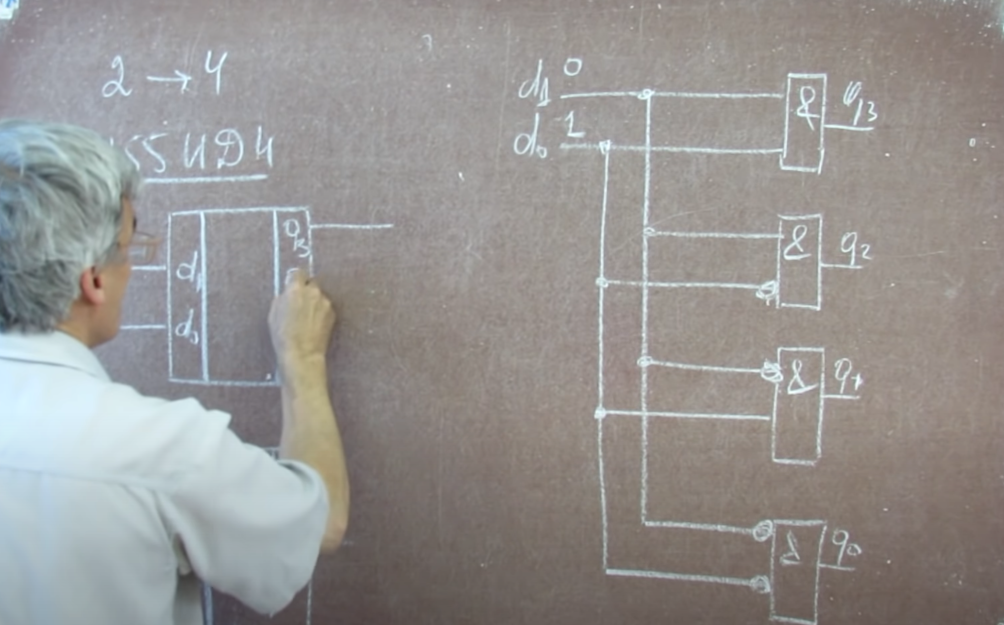 2 → 4
155 ИД4
d₁
d₀
q₃
d₁ 0
d₀ 1
& q₃
& q₂
& q₁
& q₀